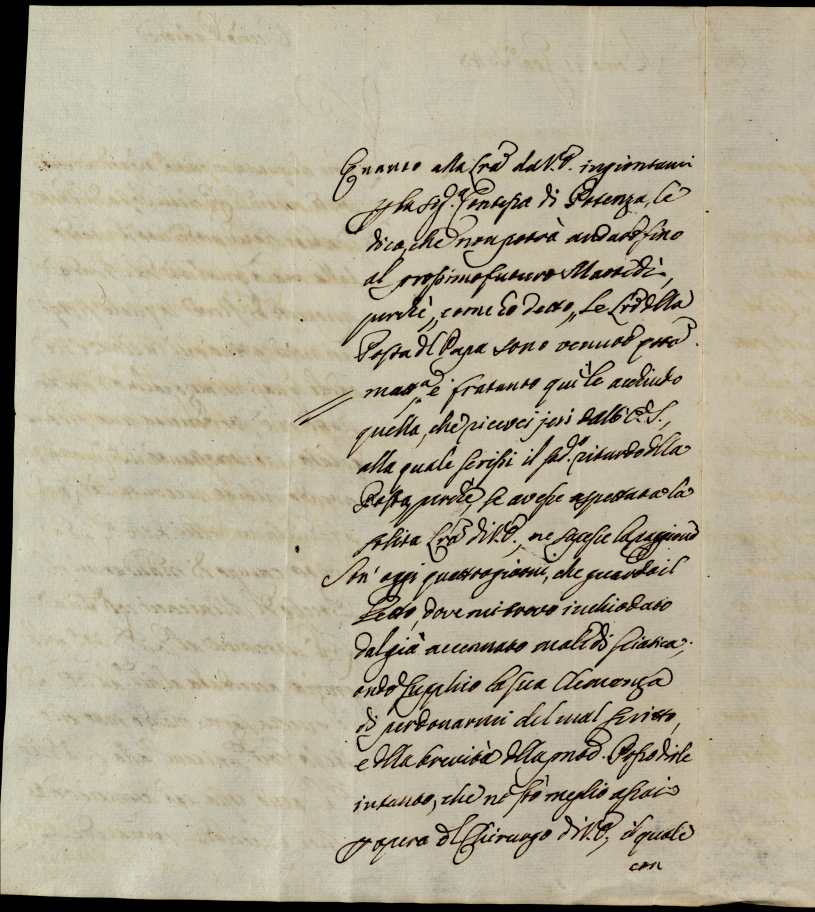 Quanto alla Lrã da V.E. ingiontami
p la Sig.ª Contessa di Potenza, le
dico, che non potrà andare fino
al prossimo futuro Martedì,
perchè, come hò detto, le Lrẽ della
Posta del Papa sono venute questa
matt.ª e fratanto quì le accludo
quella, che ricevei jeri dall' E. S.,
alla quale scrissi il sud.º ritardo della
Posta, perchè, se avesse aspettata la
solita Lrã di V.E., ne sapesse la raggione
Son' oggi quattro giorni, che guardo il
Letto, dove mi trovo inchiodato
dal già accennato male di sciatica;
onde supplico la sua Clemenza
di perdonarmi del mal scritto,
e della brevità della pnte. Posso dirle
intanto, che ne stò meglio assai
p opera del Chirurgo di V.E., il quale
con